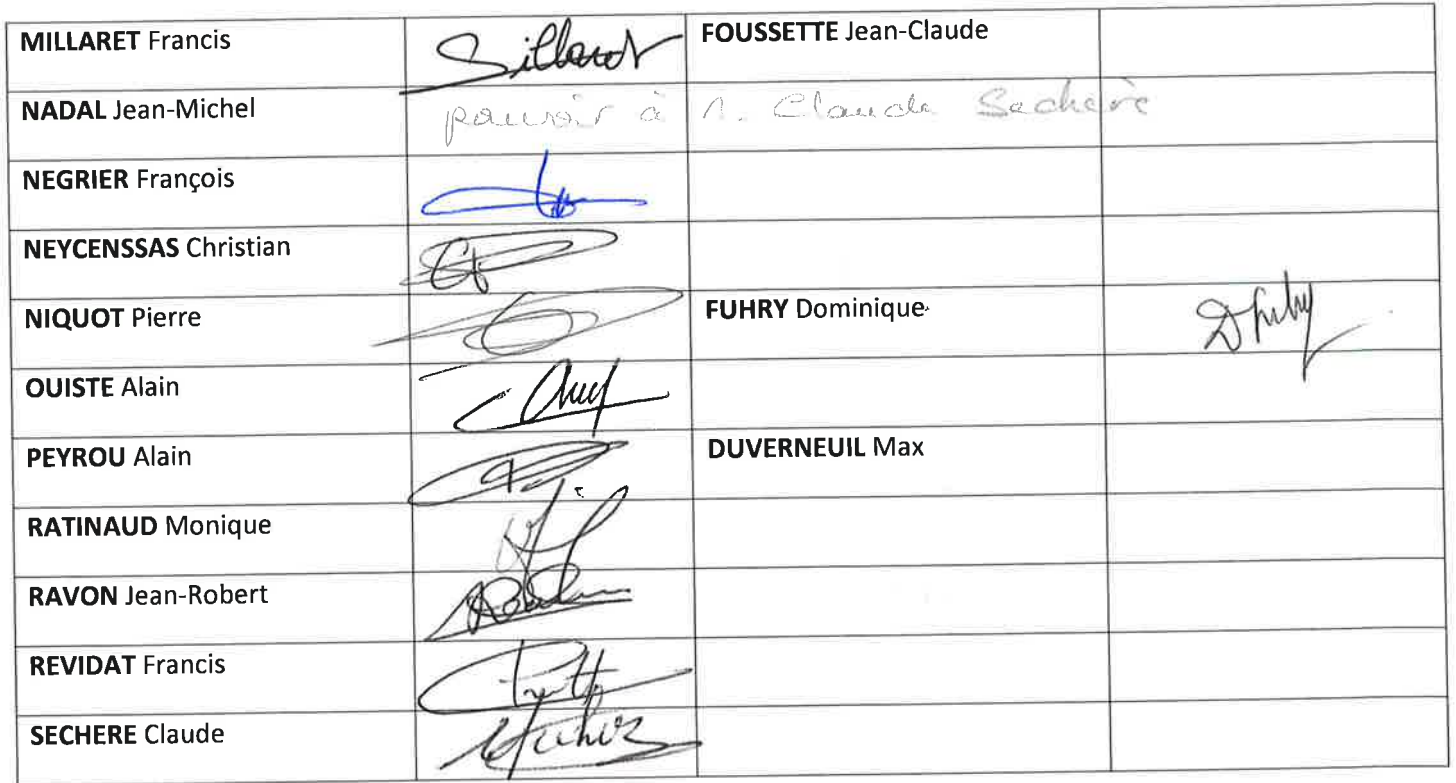 MILLARET Francis Sillaret FOUSSETTE Jean-Claude
NADAL Jean-Michel pouvoir à M. Claude Sechère
NEGRIER François
NEYCENSSAS Christian
NIQUOT Pierre FUHRY Dominique DFuhry
OUISTE Alain
PEYROU Alain DUVERNEUIL Max
RATINAUD Monique
RAVON Jean-Robert
REVIDAT Francis
SECHERE Claude